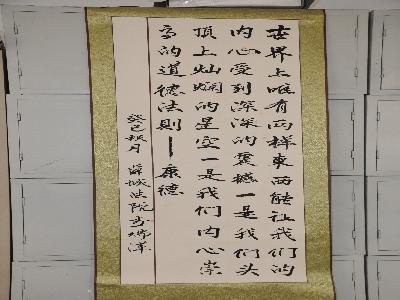 世界上唯有两样东西能让我们的
内心受到深深的震撼一是我们头
顶上灿烂的星空一是我们内心崇
高的道德法则——康德
癸巳秋月 薛城法院